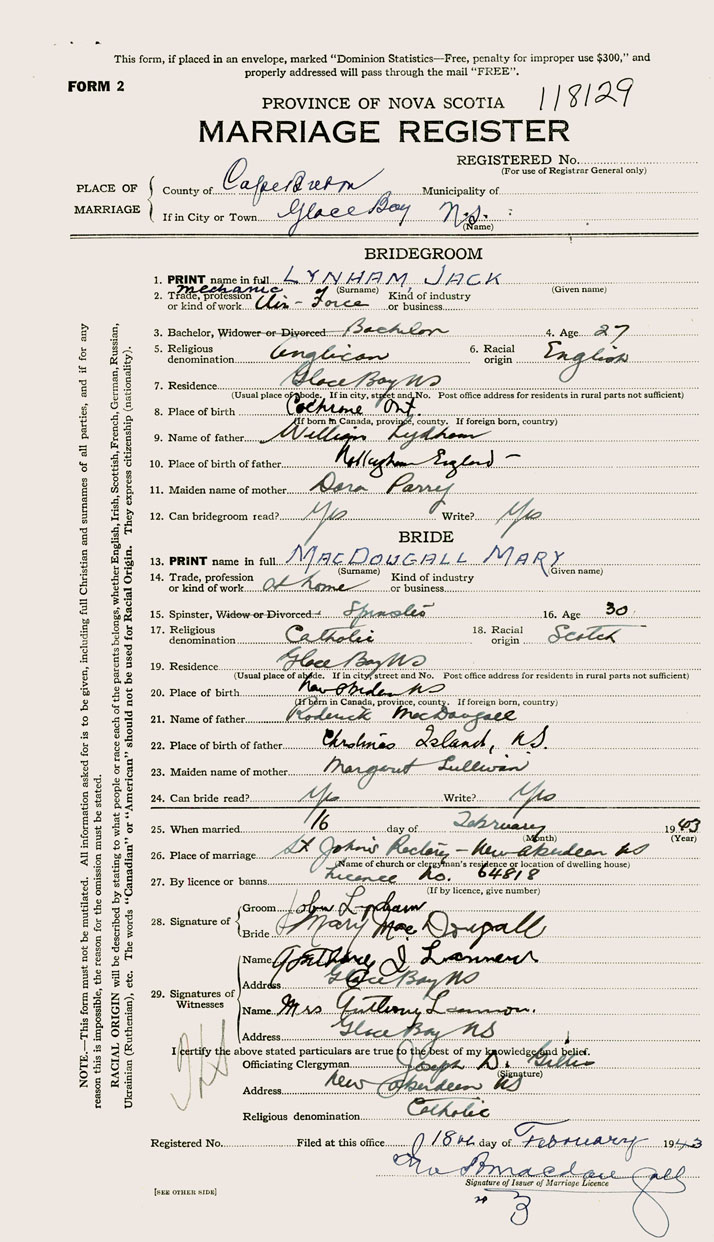 This form, if placed in an envelope, marked “Dominion Statistics—Free, penalty for improper use $300,” and
properly addressed will pass through the mail “FREE”.
FORM 2
PROVINCE OF NOVA SCOTIA 118129
MARRIAGE REGISTER
REGISTERED No.
(For use of Registrar General only)
PLACE OF MARRIAGE
County of Cape Breton Municipality of
If in City or Town Glace Bay N.S.
(Name)
BRIDEGROOM
1. PRINT name in full LYNHAM, JACK
(Surname) (Given name)
2. Trade, profession or kind of work mechanic Air-Force Kind of industry or business
3. Bachelor, Widower or Divorced Bachelor 4. Age 27
5. Religious denomination Anglican 6. Racial origin English
7. Residence Glace Bay NS
(Usual place of abode. If in city, street and No. Post office address for residents in rural parts not sufficient)
8. Place of birth Cochrane Ont.
(If born in Canada, province, county. If foreign born, country)
9. Name of father William Lynham
10. Place of birth of father Nottingham England –
11. Maiden name of mother Dora Parry
12. Can bridegroom read? Yes Write? Yes
BRIDE
13. PRINT name in full MACDOUGALL MARY
(Surname) (Given name)
14. Trade, profession or kind of work at home Kind of industry or business
15. Spinster, Widow or Divorced Spinster 16. Age 30
17. Religious denomination Catholic 18. Racial origin Scotch
19. Residence Glace Bay NS
(Usual place of abode. If in city, street and No. Post office address for residents in rural parts not sufficient)
20. Place of birth New Aberdeen NS
(If born in Canada, province, county. If foreign born, country)
21. Name of father Roderick MacDougall
22. Place of birth of father Christmas Island, NS.
23. Maiden name of mother Margaret Sullivan
24. Can bride read? Yes Write? Yes
25. When married 16 day of February 1943
(Month) (Year)
26. Place of marriage St John's Rectory – New Aberdeen NS
(Name of church or clergyman's residence or location of dwelling house)
27. By licence or banns Licence No. 64818
(If by licence, give number)
28. Signature of
Groom John Lynham
Bride Mary MacDougall
29. Signatures of Witnesses
Name Anthony J
Address Glace Bay NS
Name Mrs Anthony
Address Glace Bay NS
I certify the above stated particulars are true to the best of my knowledge and belief.
Officiating Clergyman Joseph D. Gillis
(Signature)
Address New Aberdeen NS
Religious denomination Catholic
Registered No. Filed at this office 18th day of February 1943
MacDougall
Signature of Issuer of Marriage Licence
[SEE OTHER SIDE]
3
NOTE.—This form must not be mutilated. All information asked for is to be given, including full Christian and surnames of all parties, and if for any
reason this is impossible, the reason for the omission must be stated.
RACIAL ORIGIN will be described by stating to what people or race each of the parents belongs, whether English, Irish, Scottish, French, German, Russian,
Ukrainian (Ruthenian), etc. The words “Canadian” or “American” should not be used for Racial Origin. They express citizenship (nationality).